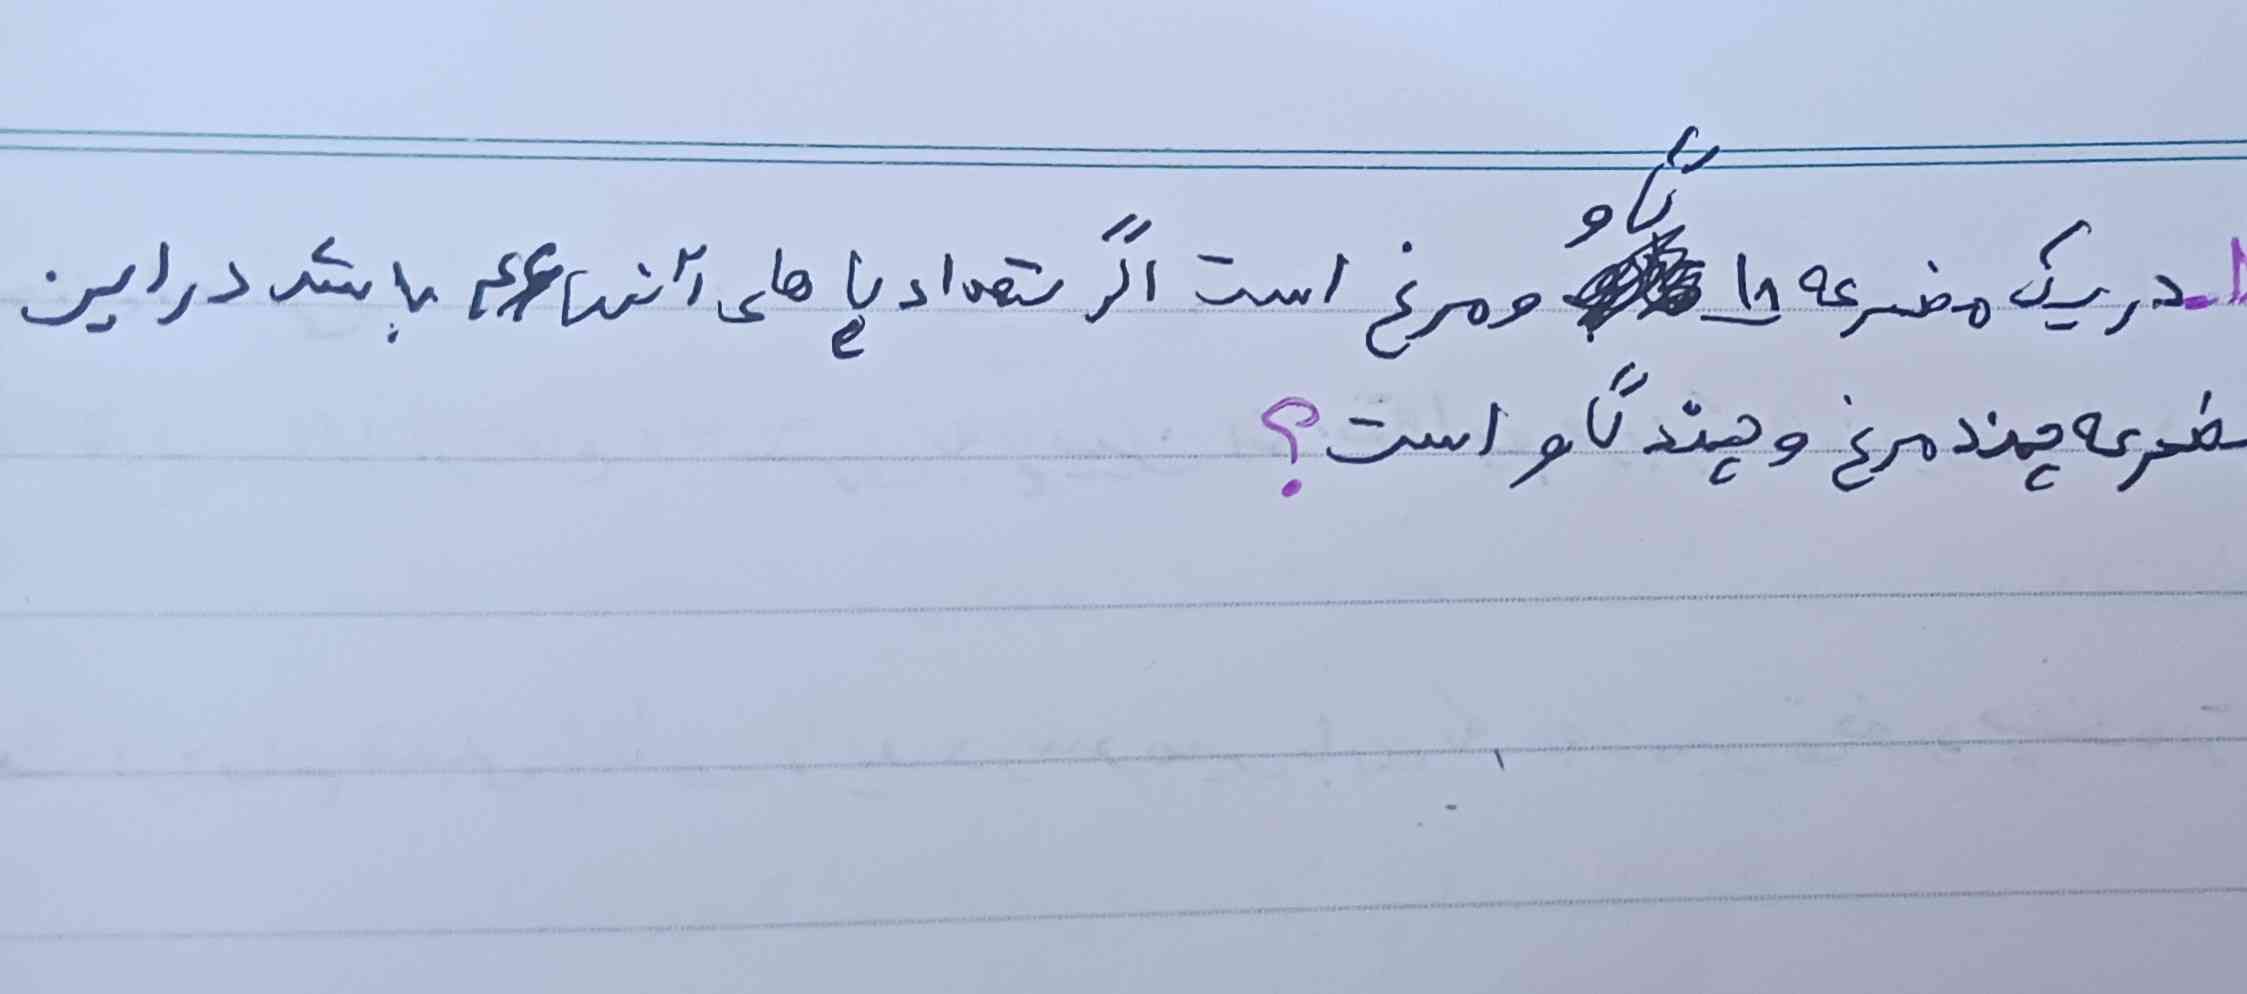 ۱- در یک مضرعه ۱۸ گاو و مرغ است اگر تعداد پا های آنها باشد در این
مضرعه چند مرغ و چند گاو است؟